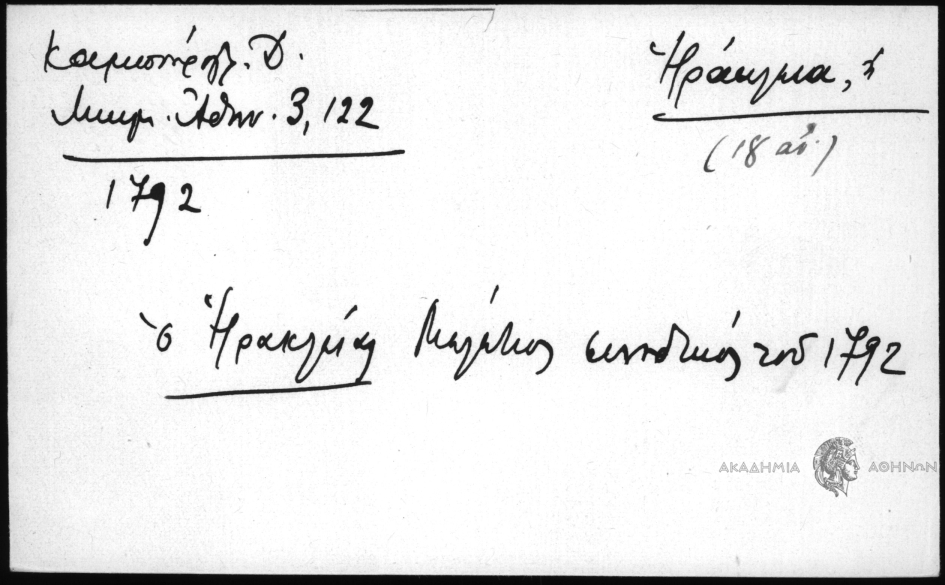 Καμπούρογλ. Δ.
Μνημ. Ἀθην. 3, 122
1792
Ἡράκλεια, ἡ
(18 αἰ.)
ὁ Ἡρακλείας Μελέτιος συνοδικός τοῦ 1792
ΑΚΑΔΗΜΙΑ ΑΘΗΝΩΝ